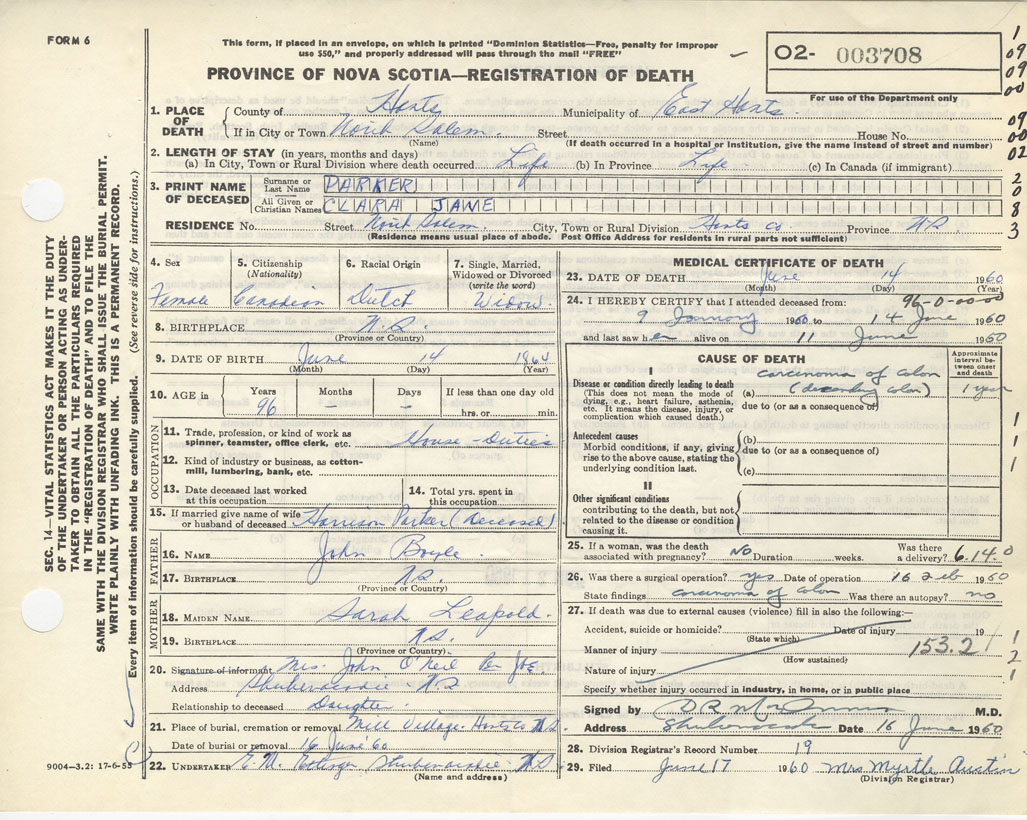 FORM 6
This form, if placed in an envelope, on which is printed "Dominion Statistics—Free, penalty for improper
use $50," and properly addressed will pass through the mail "FREE"
PROVINCE OF NOVA SCOTIA—REGISTRATION OF DEATH
O2- 003708
For use of the Department only
1
09
09
00
09
00
02
2
0
8
3
1. PLACE OF DEATH
County of Hants Municipality of East Hants
If in City or Town North Salem Street House No.
(Name) (If death occurred in a hospital or institution, give the name instead of street and number)
2. LENGTH OF STAY (in years, months and days)
(a) In City, Town or Rural Division where death occurred Life (b) In Province Life (c) In Canada (if immigrant)
3. PRINT NAME OF DECEASED
Surname or Last Name PARKER
All Given or Christian Names CLARA JANE
RESIDENCE No. Street North Salem City, Town or Rural Division Hants Co Province N.S.
(Residence means usual place of abode. Post Office Address for residents in rural parts not sufficient)
SEC. 14—VITAL STATISTICS ACT MAKES IT THE DUTY
OF THE UNDERTAKER OR PERSON ACTING AS UNDER-
TAKER TO OBTAIN ALL THE PARTICULARS REQUIRED
IN THE "REGISTRATION OF DEATH" AND TO FILE THE
SAME WITH THE DIVISION REGISTRAR WHO SHALL ISSUE THE BURIAL PERMIT.
WRITE PLAINLY WITH UNFADING INK. THIS IS A PERMANENT RECORD.
Every item of information should be carefully supplied. (See reverse side for instructions.)
4. Sex 5. Citizenship 6. Racial Origin 7. Single, Married,
(Nationality) Widowed or Divorced
(write the word)
Female Canadian Dutch Widow
8. BIRTHPLACE N.S.
(Province or Country)
9. DATE OF BIRTH June 14 1864
(Month) (Day) (Year)
10. AGE in Years Months Days If less than one day
96 – – hrs. or min.
OCCUPATION
11. Trade, profession, or kind of work as
spinner, teamster, office clerk, etc. House-Duties
12. Kind of industry or business, as cotton-
mill, lumbering, bank, etc.
13. Date deceased last worked
at this occupation
14. Total yrs. spent in
this occupation
15. If married give name of wife
or husband of deceased Harrison Parker (Deceased)
FATHER
16. NAME John Boyle
17. BIRTHPLACE N.S.
(Province or Country)
MOTHER
18. MAIDEN NAME Sarah Leapold
19. BIRTHPLACE N.S.
(Province or Country)
20. Signature of informant Mrs. John O'Neil Per
Address Shubenacadie N.S.
Relationship to deceased Daughter
21. Place of burial, cremation or removal Mill Village Hants Co N.S.
Date of burial or removal 16 June 60
22. UNDERTAKER Shubenacadie N.S.
(Name and address)
9004—3.2: 17-6-55
MEDICAL CERTIFICATE OF DEATH
23. DATE OF DEATH June 14 1960
(Month) (Day) (Year)
96-0-00-00
24. I HEREBY CERTIFY that I attended deceased from:
9 January 1960 to 14 June 1960
and last saw her alive on 11 June 1960
CAUSE OF DEATH
Approximate interval between onset and death
I
Disease or condition directly leading to death
(This does not mean the mode of
dying, e.g., heart failure, asthenia,
etc. It means the disease, injury, or
complication which caused death.)
carcinoma of colon
(a) (descending colon) 1 year
due to (or as a consequence of)
Antecedent causes
Morbid conditions, if any, giving
rise to the above cause, stating the
underlying condition last.
(b)
due to (or as a consequence of)
(c)
II
Other significant conditions
contributing to the death, but not
related to the disease or condition
causing it.
1
1
1
25. If a woman, was the death
associated with pregnancy? No Duration weeks. Was there
a delivery? 6.14.0
26. Was there a surgical operation? yes Date of operation 16 Feb 1960
State findings carcinoma of colon Was there an autopsy? no
27. If death was due to external causes (violence) fill in also the following:—
Accident, suicide or homicide? Date of injury 19
(State which)
Manner of injury 153.2
(How sustained)
Nature of injury
1
2
1
Specify whether injury occurred in industry, in home, or in public place
Signed by M.D.
Address Shubenacadie Date 16 June 1960
28. Division Registrar's Record Number 19
29. Filed June 17 1960 Mrs Myrtle Austin
(Division Registrar)